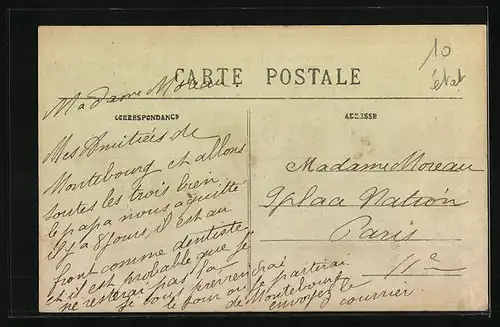 10
état
CARTE POSTALE
CORRESPONDANCE
ADRESSE
Madame Moreau
Mes Amitiées de
Montebourg et allons
toutes les trois bien
le papa nous a quitté
il y a 8 jours, il est au
front comme dentiste
et il est probable que je
ne resterai pas là
je vous preverdrai
le jour où je partirai
de Montebourg
envoyez le
courrier.
Madame Moreau
9 plac Nation
Paris
11e